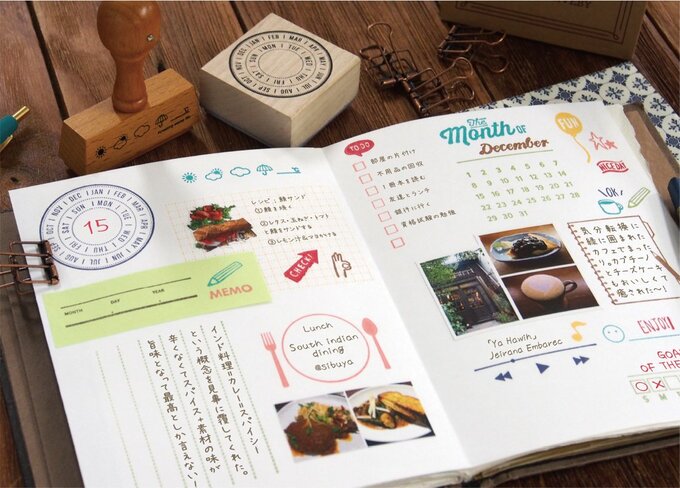 DEC | JAN | FEB | MAR | APR | MAY | JUN | JUL | AUG | SEP | OCT | NOV
SUN | MON | TUE | WED | THU | FRI | SAT
15
MONTH DAY YEAR
MEMO
レシピ:鯖サンド
①鯖を焼く
②レタス・玉ねぎ・トマト
と鯖をサンドする
③レモン汁&マヨをかける
CHECK!
Lunch
South indian
dining
@sibuya
インド料理=カレー=スパイシー
という概念を見事に覆してくれた。
辛くなくてスパイス+素材の味が
旨味となって最高としか言えない!
TO DO
部屋の片付け
不用品の回収
1冊本を読む
友達とランチ
銀行に行く
資格試験の勉強
The
Month OF
December
1 2 3 4 5 6 7
8 9 10 11 12 13 14
15 16 17 18 19 20 21
22 23 24 25 26 27 28
29 30 31
FUN
NICE ONE
OK!
気分転換に
緑に囲まれた
カフェでまったり。
カプチーノ
とチーズケーキ
もおいしくて
癒された〜!
"Ya Hawih"
Jeirana Embarec
ENJOY!
GOAL
OF THE
S M